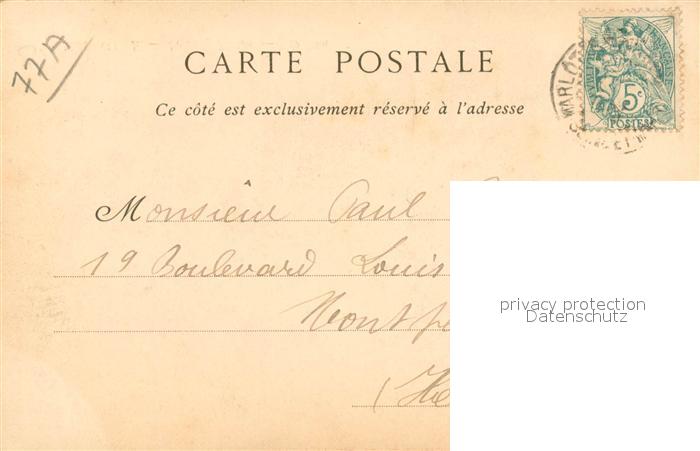 77A
CARTE POSTALE
Ce côté est exclusivement réservé à l'adresse
5c
POSTES
MARLOT
Monsieur Paul
19 Boulevard Louis
Montpe
(He
privacy protection
Datenschutz